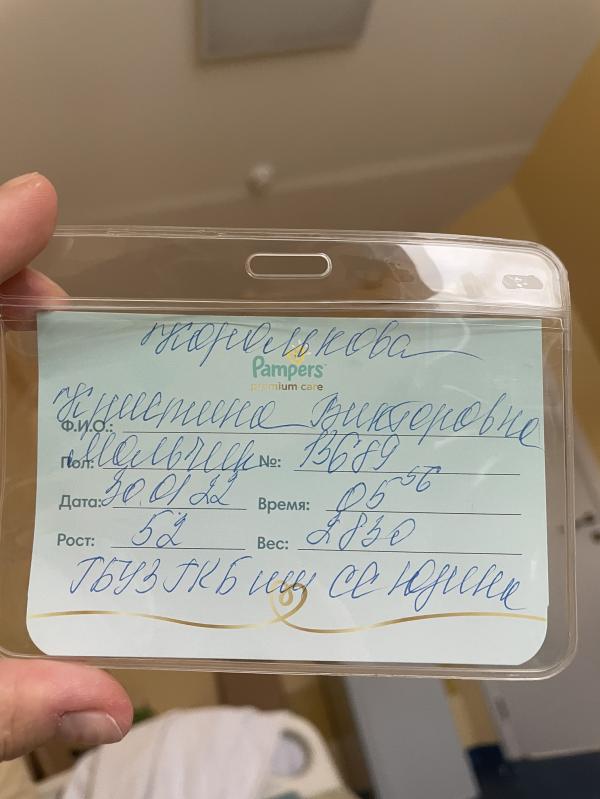 Королькова
Pampers
premium care
Ф.И.О.: Кристина Викторовна
Пол: Мальчик №: 13689
Дата: 30.01.22 Время: 05 56
Рост: 52 Вес: 2830
ГБУЗ ГКБ им СС Юдина